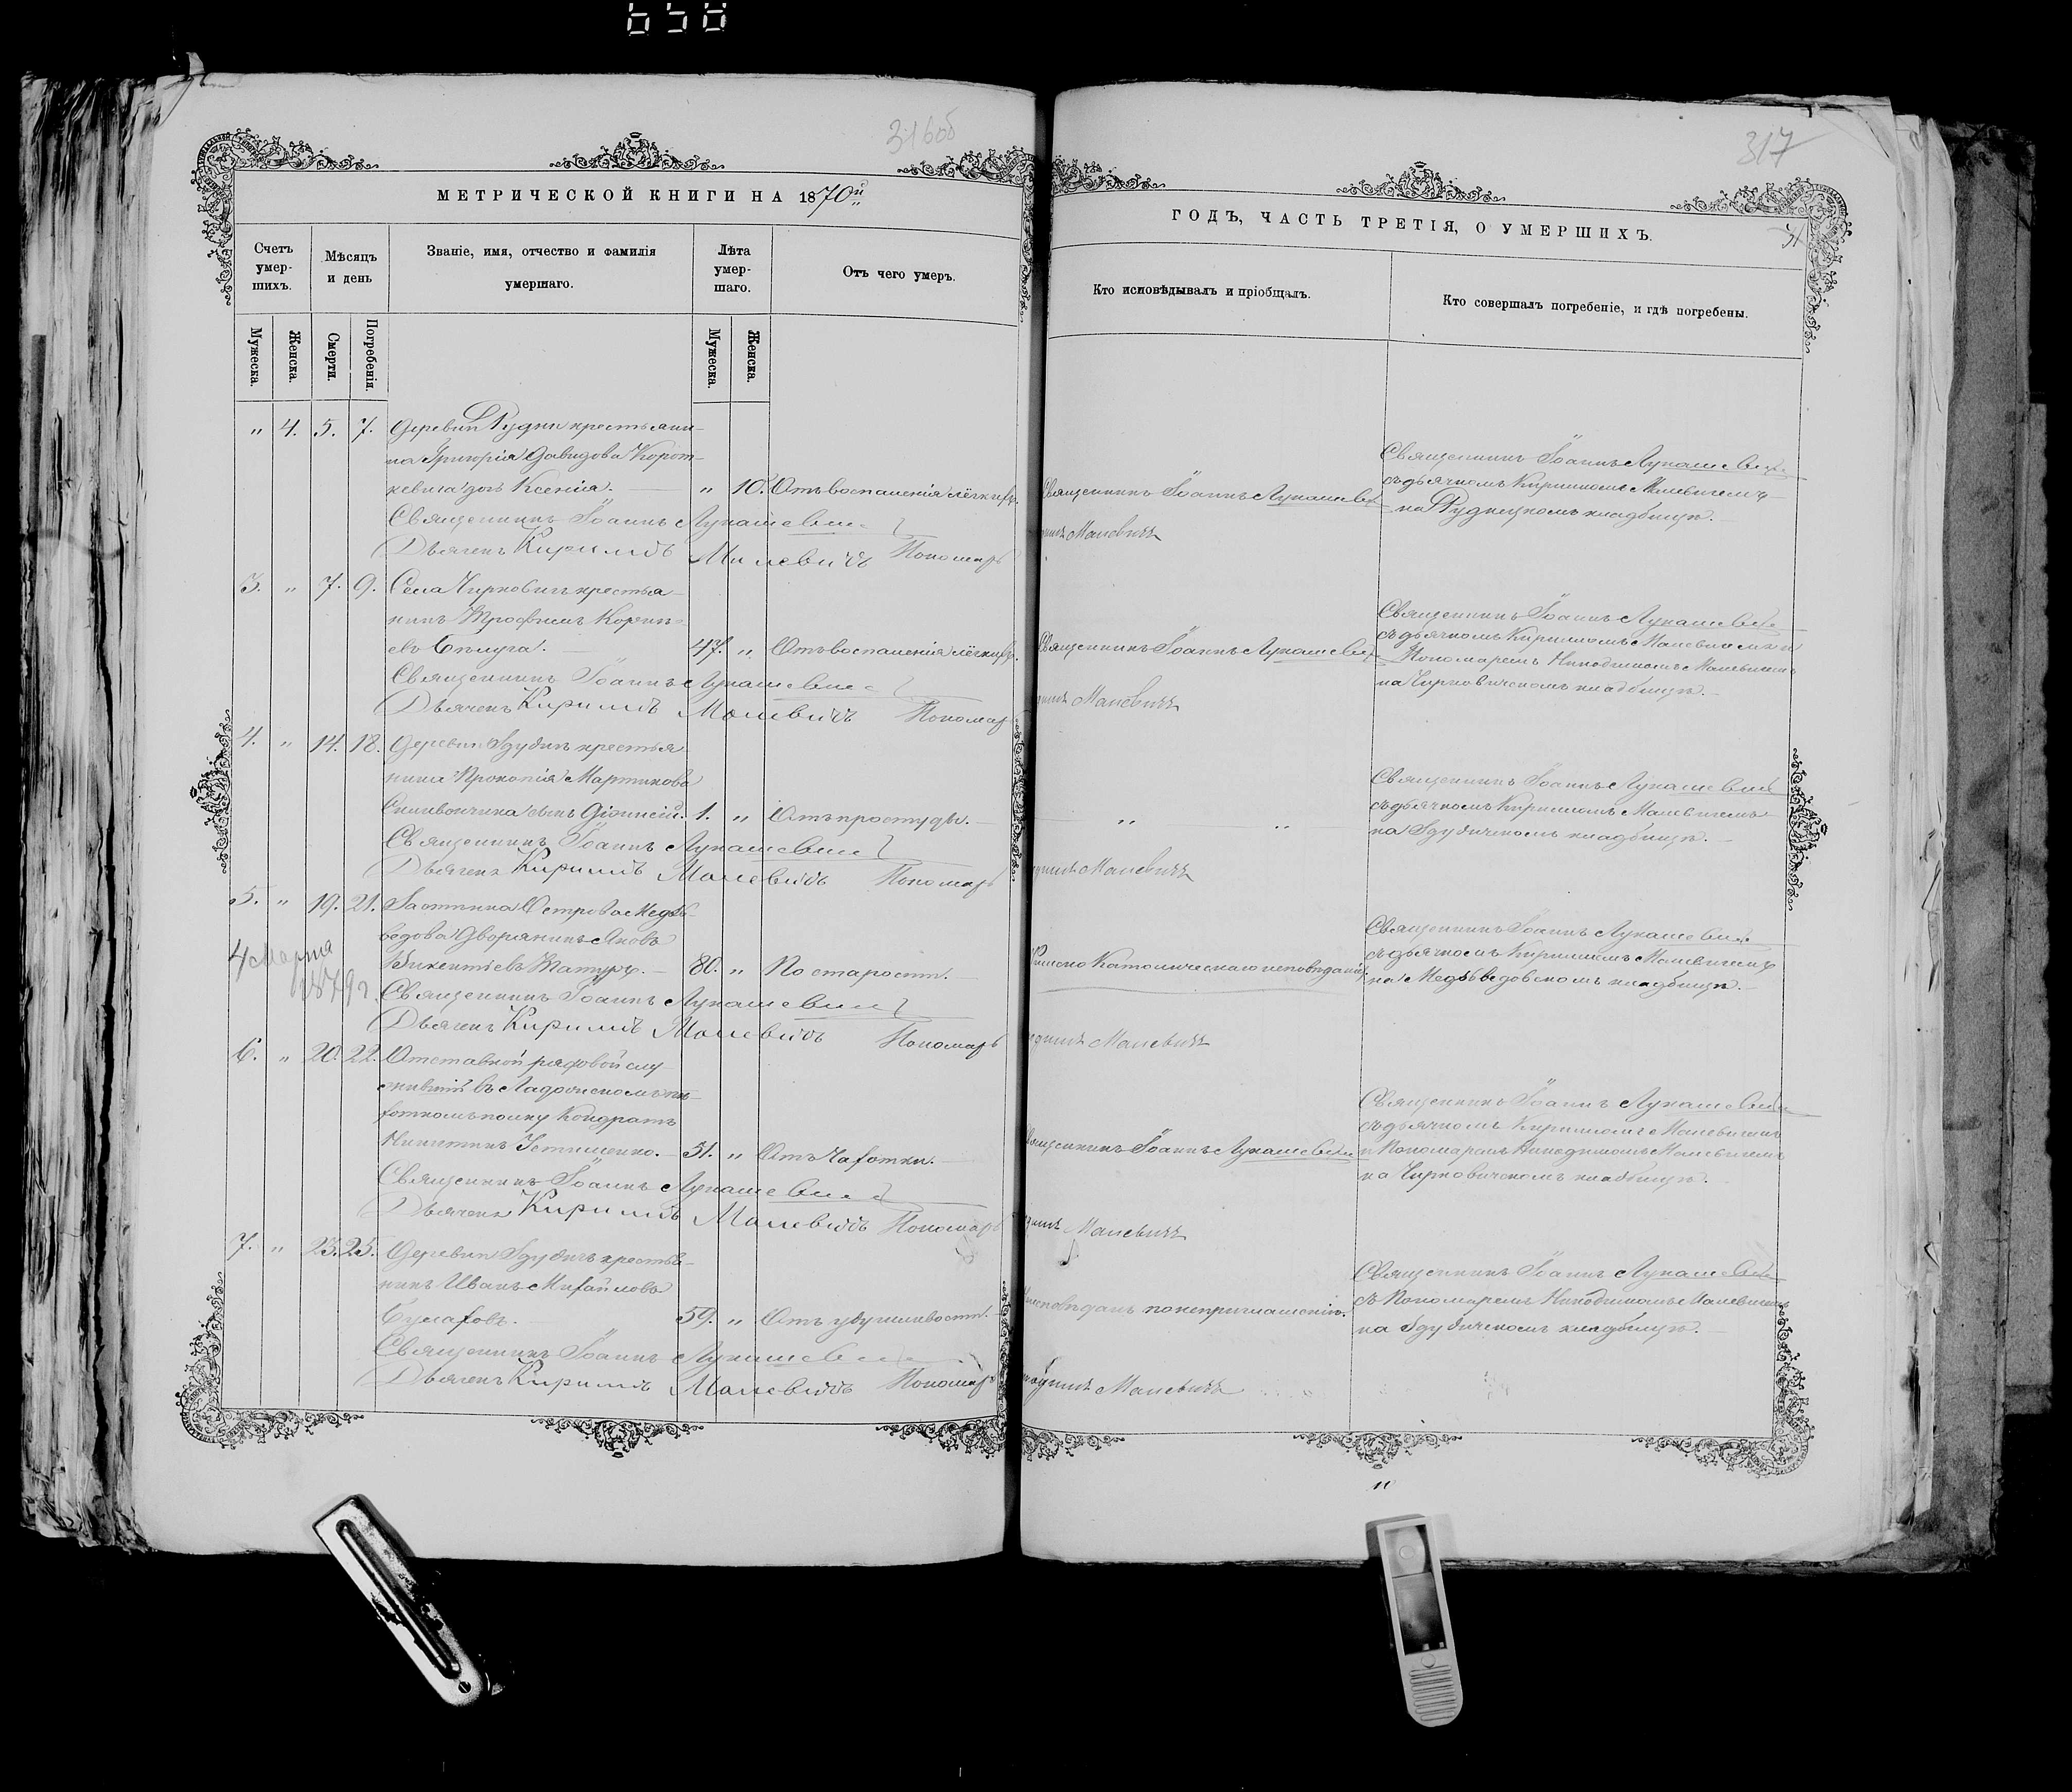 658
316об
МЕТРИЧЕСКОЙ КНИГИ НА 1870й
Счетъ умер-шихъ.
Мѣсяцъ и день
Званіе, имя, отчество и фамилія умершаго.
Лѣта умер-шаго.
Отъ чего умеръ.
Мужеска. Женска. Смерти. Погребенія. Мужеска. Женска.
" 4. 5. 7. Деревни Рудни крестьяни-
на Григорія Давидова Корот-
кевича дочь Ксенія. " 10. Отъ воспаленія лёгкихъ.
Священникъ Іоаннъ Лукашевичъ
Дьячекъ Кириллъ Малевичъ Пономарь
3. " 7. 9. Села Чирковичъ крестья-
нинъ Трофимъ Корнѣ-
евъ Бѣлуга. 47. " Отъ воспаленія лёгкихъ.
Священникъ Іоаннъ Лукашевичъ
Дьячекъ Кириллъ Малевичъ Пономарь
4. " 14. 18. Деревни Здудичъ крестья-
нина Прокопія Мартинова
сынъ Діонисій. 1. " Отъ простуды.
Священникъ Іоаннъ Лукашевичъ
Дьячекъ Кириллъ Малевичъ Пономарь
5. " 19. 21. Застѣнка Острова Медв-
ведова Дворянинъ Яковъ
Викентіевъ 80. " По старости.
4 Марта 1879 г.
Священникъ Іоаннъ Лукашевичъ
Дьячекъ Кириллъ Малевичъ Пономарь
6. " 20. 22. Отставной рядовой слу-
жившій въ Ладожскомъ пѣ-
хотномъ полку Кондратъ
Никитинъ Устименко. 51. " Отъ Чахотки.
Священникъ Іоаннъ Лукашевичъ
Дьячекъ Кириллъ Малевичъ Пономарь
7. " 23. 25. Деревни Здудичъ крестья-
нинъ Иванъ Михайловъ
Булаховъ. 59. " Отъ удушливости.
Священникъ Іоаннъ Лукашевичъ
Дьячекъ Кириллъ Малевичъ Пономарь
317
ГОДЪ, ЧАСТЬ ТРЕТІЯ, О УМЕРШИХЪ.
Кто исповѣдывалъ и пріобщалъ.
Кто совершалъ погребеніе, и гдѣ погребены.
Священникъ Іоаннъ Лукашевичъ
Малевичъ
Священникъ Іоаннъ Лукашевичъ
съ дьячкомъ Кирилломъ Малевичемъ
на Рудницкомъ кладбищѣ.
Священникъ Іоаннъ Лукашевичъ
Малевичъ
Священникъ Іоаннъ Лукашевичъ
съ дьячкомъ Кирилломъ Малевичемъ и
Пономаремъ Никодимомъ Малевичемъ
на Чирковичскомъ кладбищѣ.
" "
Малевичъ
Священникъ Іоаннъ Лукашевичъ
съ дьячкомъ Кирилломъ Малевичемъ
на Здудичскомъ кладбищѣ.
Римско Католическаго исповѣданія.
Малевичъ
Священникъ Іоаннъ Лукашевичъ
съ дьячкомъ Кирилломъ Малевичемъ
на Медвѣдовскомъ кладбищѣ.
Священникъ Іоаннъ Лукашевичъ
Малевичъ
Священникъ Іоаннъ Лукашевичъ
съ дьячкомъ Кирилломъ Малевичемъ
и Пономаремъ Никодимомъ Малевичемъ
на Чирковичскомъ кладбищѣ.
исповѣданъ по неприглашенію.
Малевичъ
Священникъ Іоаннъ Лукашевичъ
съ Пономаремъ Никодимомъ Малевичемъ
на Здудичскомъ кладбищѣ.